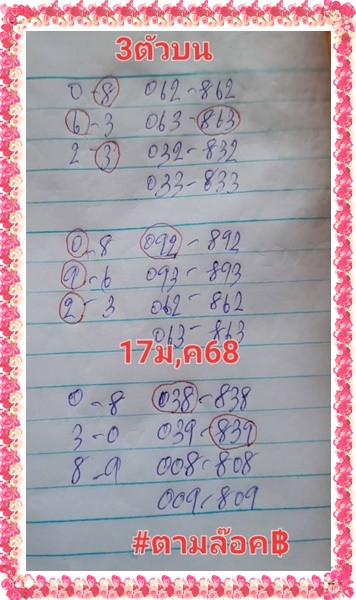 3ตัวบน
0-8 062-862
6-3 063-863
2-3 032-832
033-833
0-8 092-892
9-6 093-893
2-3 062-862
063-863
17ม,ค68
0-8 038-838
3-0 039-839
8-9 008-808
009-809
#ตามล๊อค฿